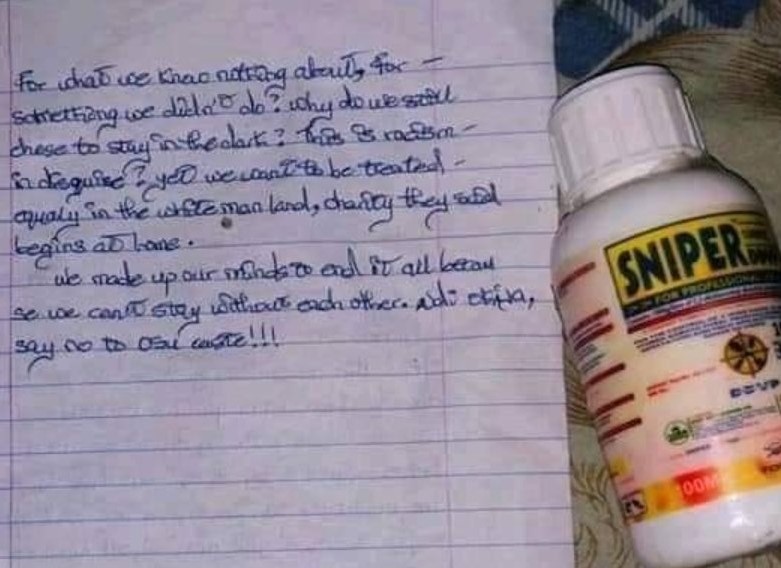 For what we know nothing about, for -
something we didn't do? why do we still
chose to stay in the dark? This is racism -
in disguise? yet we want to be treated -
equaly in the white man land, charity they said
begins at home.
we made up our minds to end it all becau
se we can't stay without each other. Ndi
say no to osu caste!!!
SNIPER
FOR PROFESSIONAL
100M